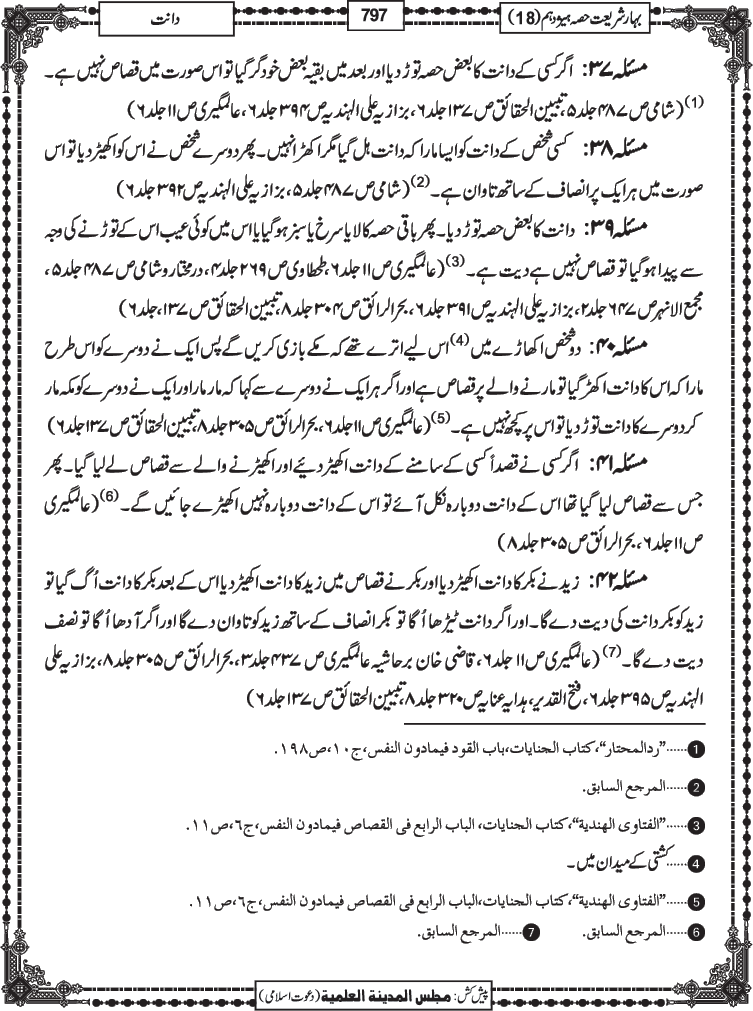 بہار شریعت حصہ ہیژدہم (18)
797
دانت
مسئلہ ۳۷: اگر کسی کے دانت کا بعض حصہ توڑ دیا اور بعد میں بقیہ بعض خود گر گیا تو اس صورت میں قصاص نہیں ہے۔
(1) (شامی ص ۴۸۷ جلد ۵، تبیین الحقائق ص ۱۳۷ جلد ۶، بزازیہ علی الہندیہ ص ۳۹۴ جلد ۶، عالمگیری ص ۱۱ جلد ۶)
مسئلہ ۳۸: کسی شخص کے دانت کو ایسا مارا کہ دانت ہل گیا مگر اکھڑا نہیں۔ پھر دوسرے شخص نے اس کو اکھیڑ دیا تو اس
صورت میں ہر ایک پر انصاف کے ساتھ تاوان ہے۔(2) (شامی ص ۴۸۷ جلد ۵، بزازیہ علی الہندیہ ص ۳۹۲ جلد ۶)
مسئلہ ۳۹: دانت کا بعض حصہ توڑ دیا۔ پھر باقی حصہ کالا یا سرخ یا سبز ہو گیا یا اس میں کوئی عیب اس کے توڑنے کی وجہ
سے پیدا ہو گیا تو قصاص نہیں ہے دیت ہے۔(3) (عالمگیری ص ۱۱ جلد ۶، طحطاوی ص ۲۶۹ جلد ۴، درمختار و شامی ص ۴۸۷ جلد ۵،
مجمع الانہر ص ۶۴۷ جلد ۲، بزازیہ علی الہندیہ ص ۳۹۱ جلد ۶، بحرالرائق ص ۳۰۴ جلد ۸، تبیین الحقائق ص ۱۳۷، جلد ۶)
مسئلہ ۴۰: دو شخص اکھاڑے میں (4) اس لیے اترے تھے کہ مکے بازی کریں گے پس ایک نے دوسرے کو اس طرح
مارا کہ اس کا دانت اکھڑ گیا تو مارنے والے پر قصاص ہے اور اگر ہر ایک نے دوسرے سے کہا کہ مار مار اور ایک نے دوسرے کو مکہ مار
کر دوسرے کا دانت توڑ دیا تو اس پر کچھ نہیں ہے۔(5) (عالمگیری ص ۱۱ جلد ۶، بحرالرائق ص ۳۰۵ جلد ۸، تبیین الحقائق ص ۱۳۷ جلد ۶)
مسئلہ ۴۱: اگر کسی نے قصداً کسی کے سامنے کے دانت اکھیڑ دیئے اور اکھیڑنے والے سے قصاص لے لیا گیا۔ پھر
جس سے قصاص لیا گیا تھا اس کے دانت دوبارہ نکل آئے تو اس کے دانت دوبارہ نہیں اکھیڑے جائیں گے۔(6) (عالمگیری
ص ۱۱ جلد ۶، بحرالرائق ص ۳۰۵ جلد ۸)
مسئلہ ۴۲: زید نے بکر کا دانت اکھیڑ دیا اور بکر نے قصاص میں زید کا دانت اکھیڑ دیا اس کے بعد بکر کا دانت اُگ گیا تو
زید کو بکر دانت کی دیت دے گا۔ اور اگر دانت ٹیڑھا اُگا تو بکر انصاف کے ساتھ زید کو تاوان دے گا اور اگر آدھا اُگا تو نصف
دیت دے گا۔(7) (عالمگیری ص ۱۱ جلد ۶، قاضی خان برحاشیہ عالمگیری ص ۴۳۷ جلد ۳، بحرالرائق ص ۳۰۵ جلد ۸، بزازیہ علی
الہندیہ ص ۳۹۵ جلد ۶، فتح القدیر، ہدایہ عنایہ ص ۳۲۰ جلد ۸، تبیین الحقائق ص ۱۳۷ جلد ۶)
1......"ردالمحتار"، کتاب الجنایات، باب القود فیمادون النفس، ج۱۰، ص۱۹۸.
2......المرجع السابق.
3......"الفتاوی الھندیة"، کتاب الجنایات، الباب الرابع فی القصاص فیمادون النفس، ج۶، ص۱۱.
4......کشتی کے میدان میں۔
5......"الفتاوی الھندیة"، کتاب الجنایات، الباب الرابع فی القصاص فیمادون النفس، ج۶، ص۱۱.
6......المرجع السابق. 7......المرجع السابق.
پیش کش: مجلس المدینة العلمیة (دعوت اسلامی)